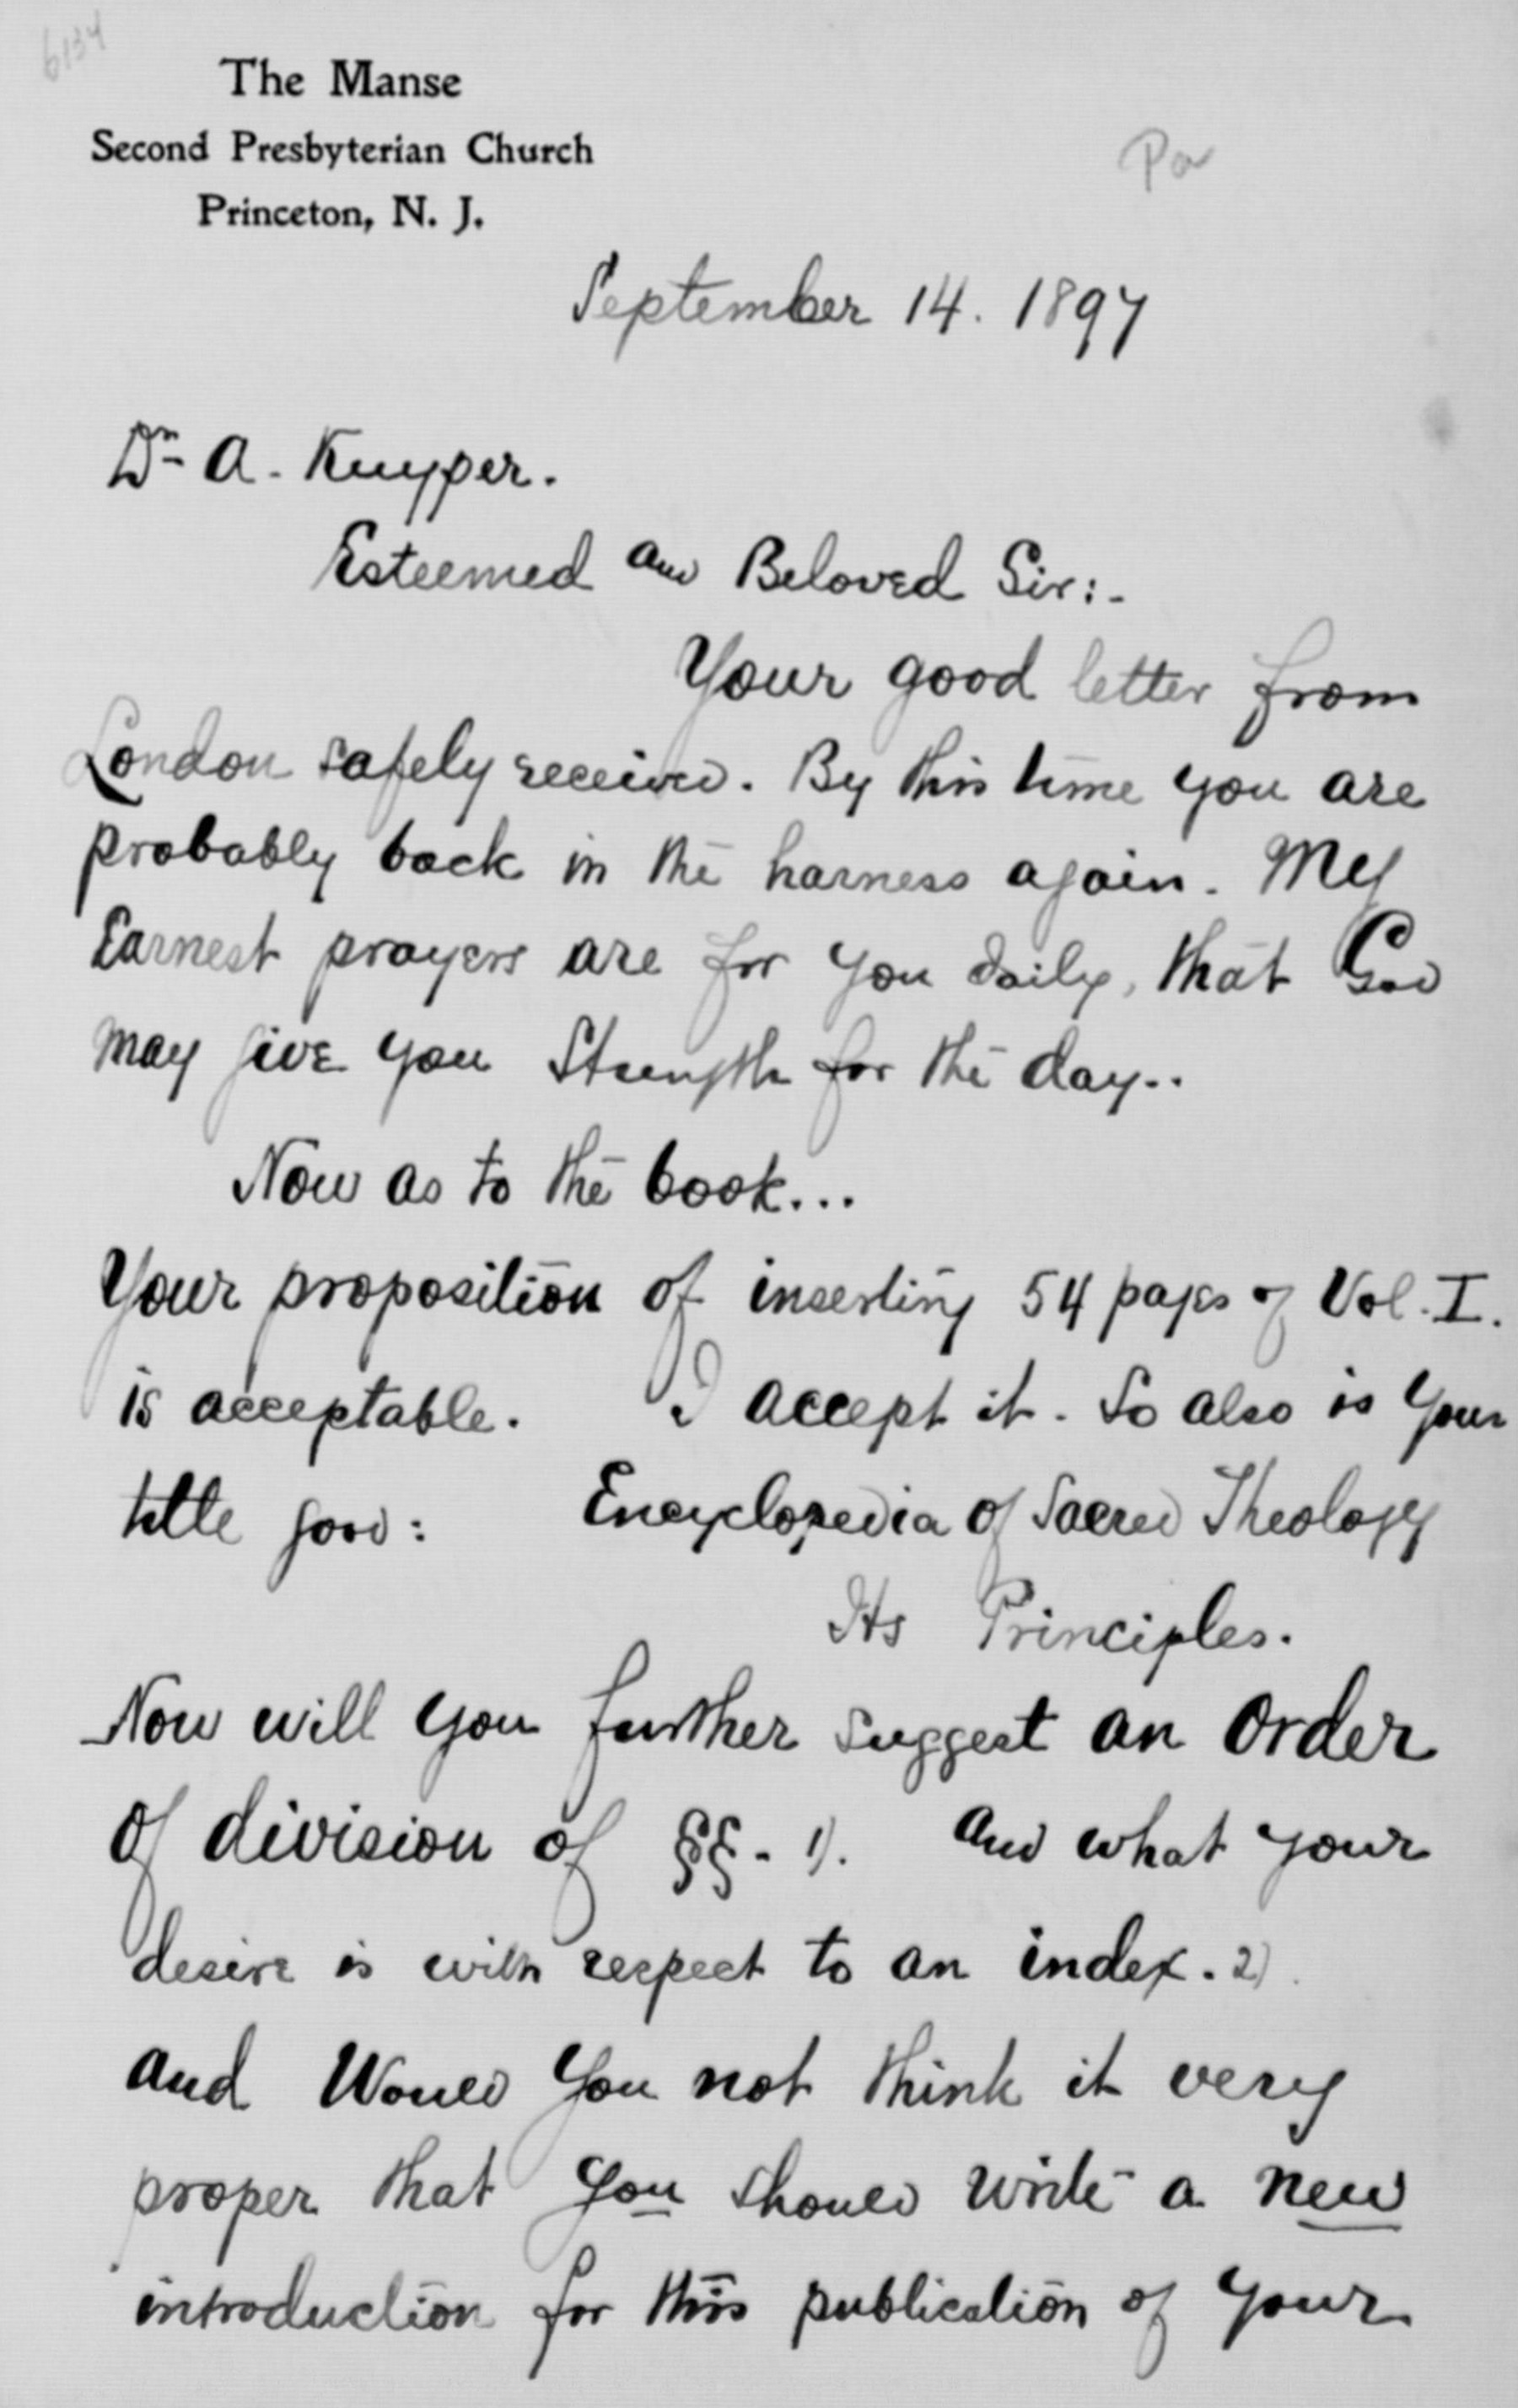 6134
The Manse
Second Presbyterian Church
Princeton, N. J.
September 14. 1897
Dr. A. Kuyper.
Esteemed and Beloved Sir:-
Your good letter from
London safely received. By this time you are
probably back in the harness again. My
Earnest prayers are for you daily, that God
may give you Strength for the day..
Now as to the book...
Your proposition of inserting 54 pages of Vol. I.
is acceptable. I accept it. So also is your
title good: Encyclopedia of Sacred Theology
Its Principles.
Now will you further suggest an Order
of division of §§- 1). And what your
desire is with respect to an index. 2).
and Would you not think it very
proper that you should write a new
introduction for this publication of your